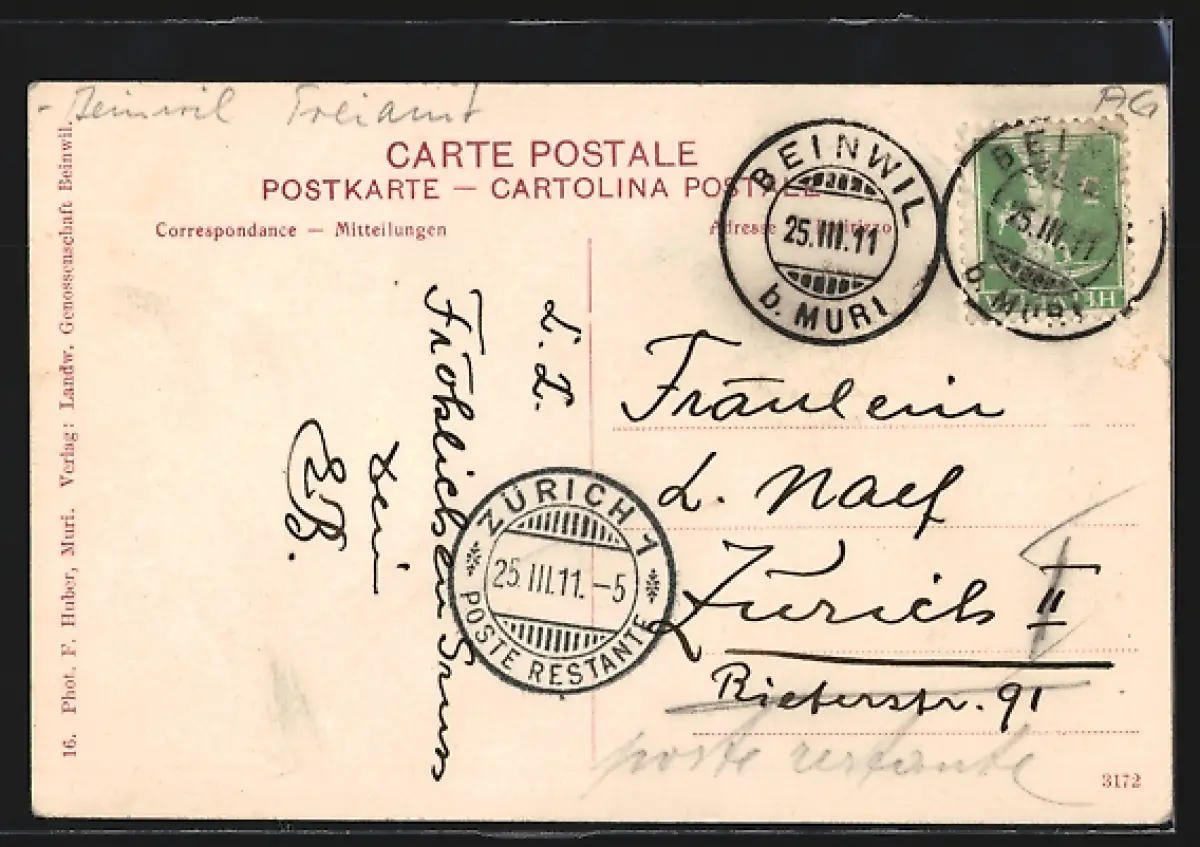 Beinwil Freiamt
AG
CARTE POSTALE
POSTKARTE — CARTOLINA POSTALE
Correspondance — Mitteilungen
Adresse
BEINWIL
25.III.11
b. MURI
BEIN
25.III.11
b. MURI
L. L.
Fröhlichen Gruss
Dein
EB.
Fräulein
L. Naef
Zürich II
Rieterstr. 91
poste restante
ZÜRICH 1
25.III.11.-5
POSTE RESTANTE
16. Phot. F. Huber, Muri. Verlag: Landw. Genossenschaft Beinwil.
3172